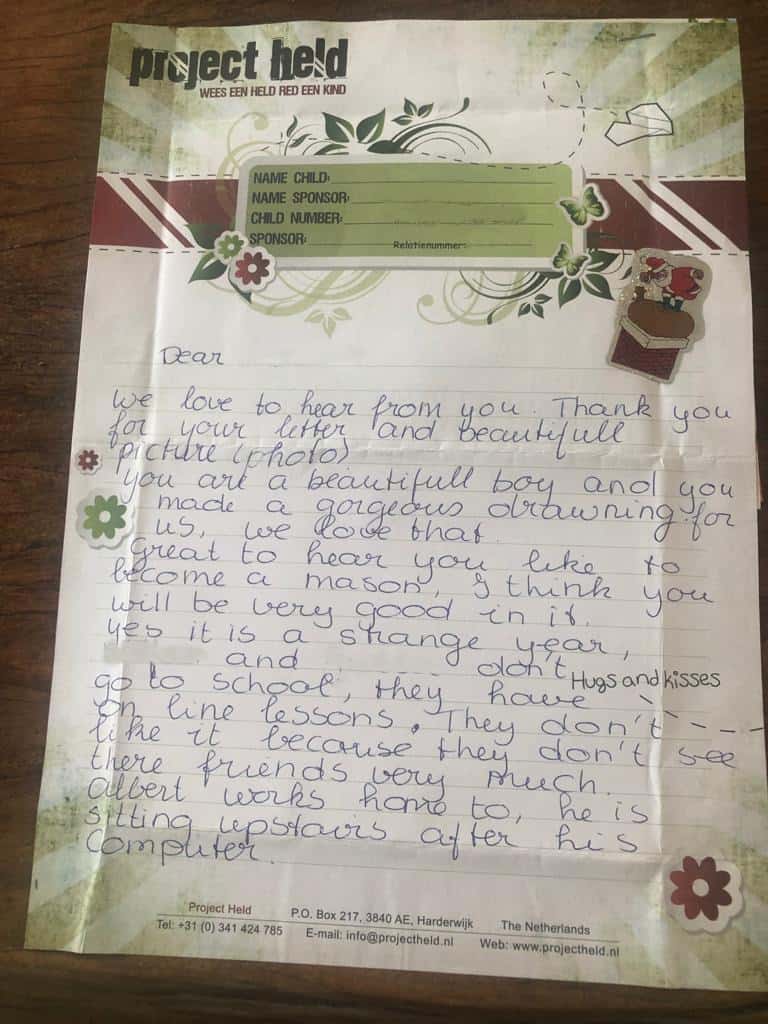 project held
WEES EEN HELD RED EEN KIND
NAME CHILD:
NAME SPONSOR:
CHILD NUMBER:
SPONSOR:
Relatienummer:
Dear
We love to hear from you. Thank you
for your letter and beautifull
picture (photo)
you are a beautifull boy and you
made a gorgeous drawning for
us, we love that.
Great to hear you like to
become a mason, I think you
will be very good in it.
yes it is a strange year,
and don't
Hugs and kisses
go to school, they have
on line lessons. They don't
like it because they don't see
there friends very much.
Albert works home to, he is
sitting upstairs after his
computer.
Project Held P.O. Box 217, 3840 AE, Harderwijk The Netherlands
Tel: +31 (0) 341 424 785 E-mail: info@projectheld.nl Web: www.projectheld.nl